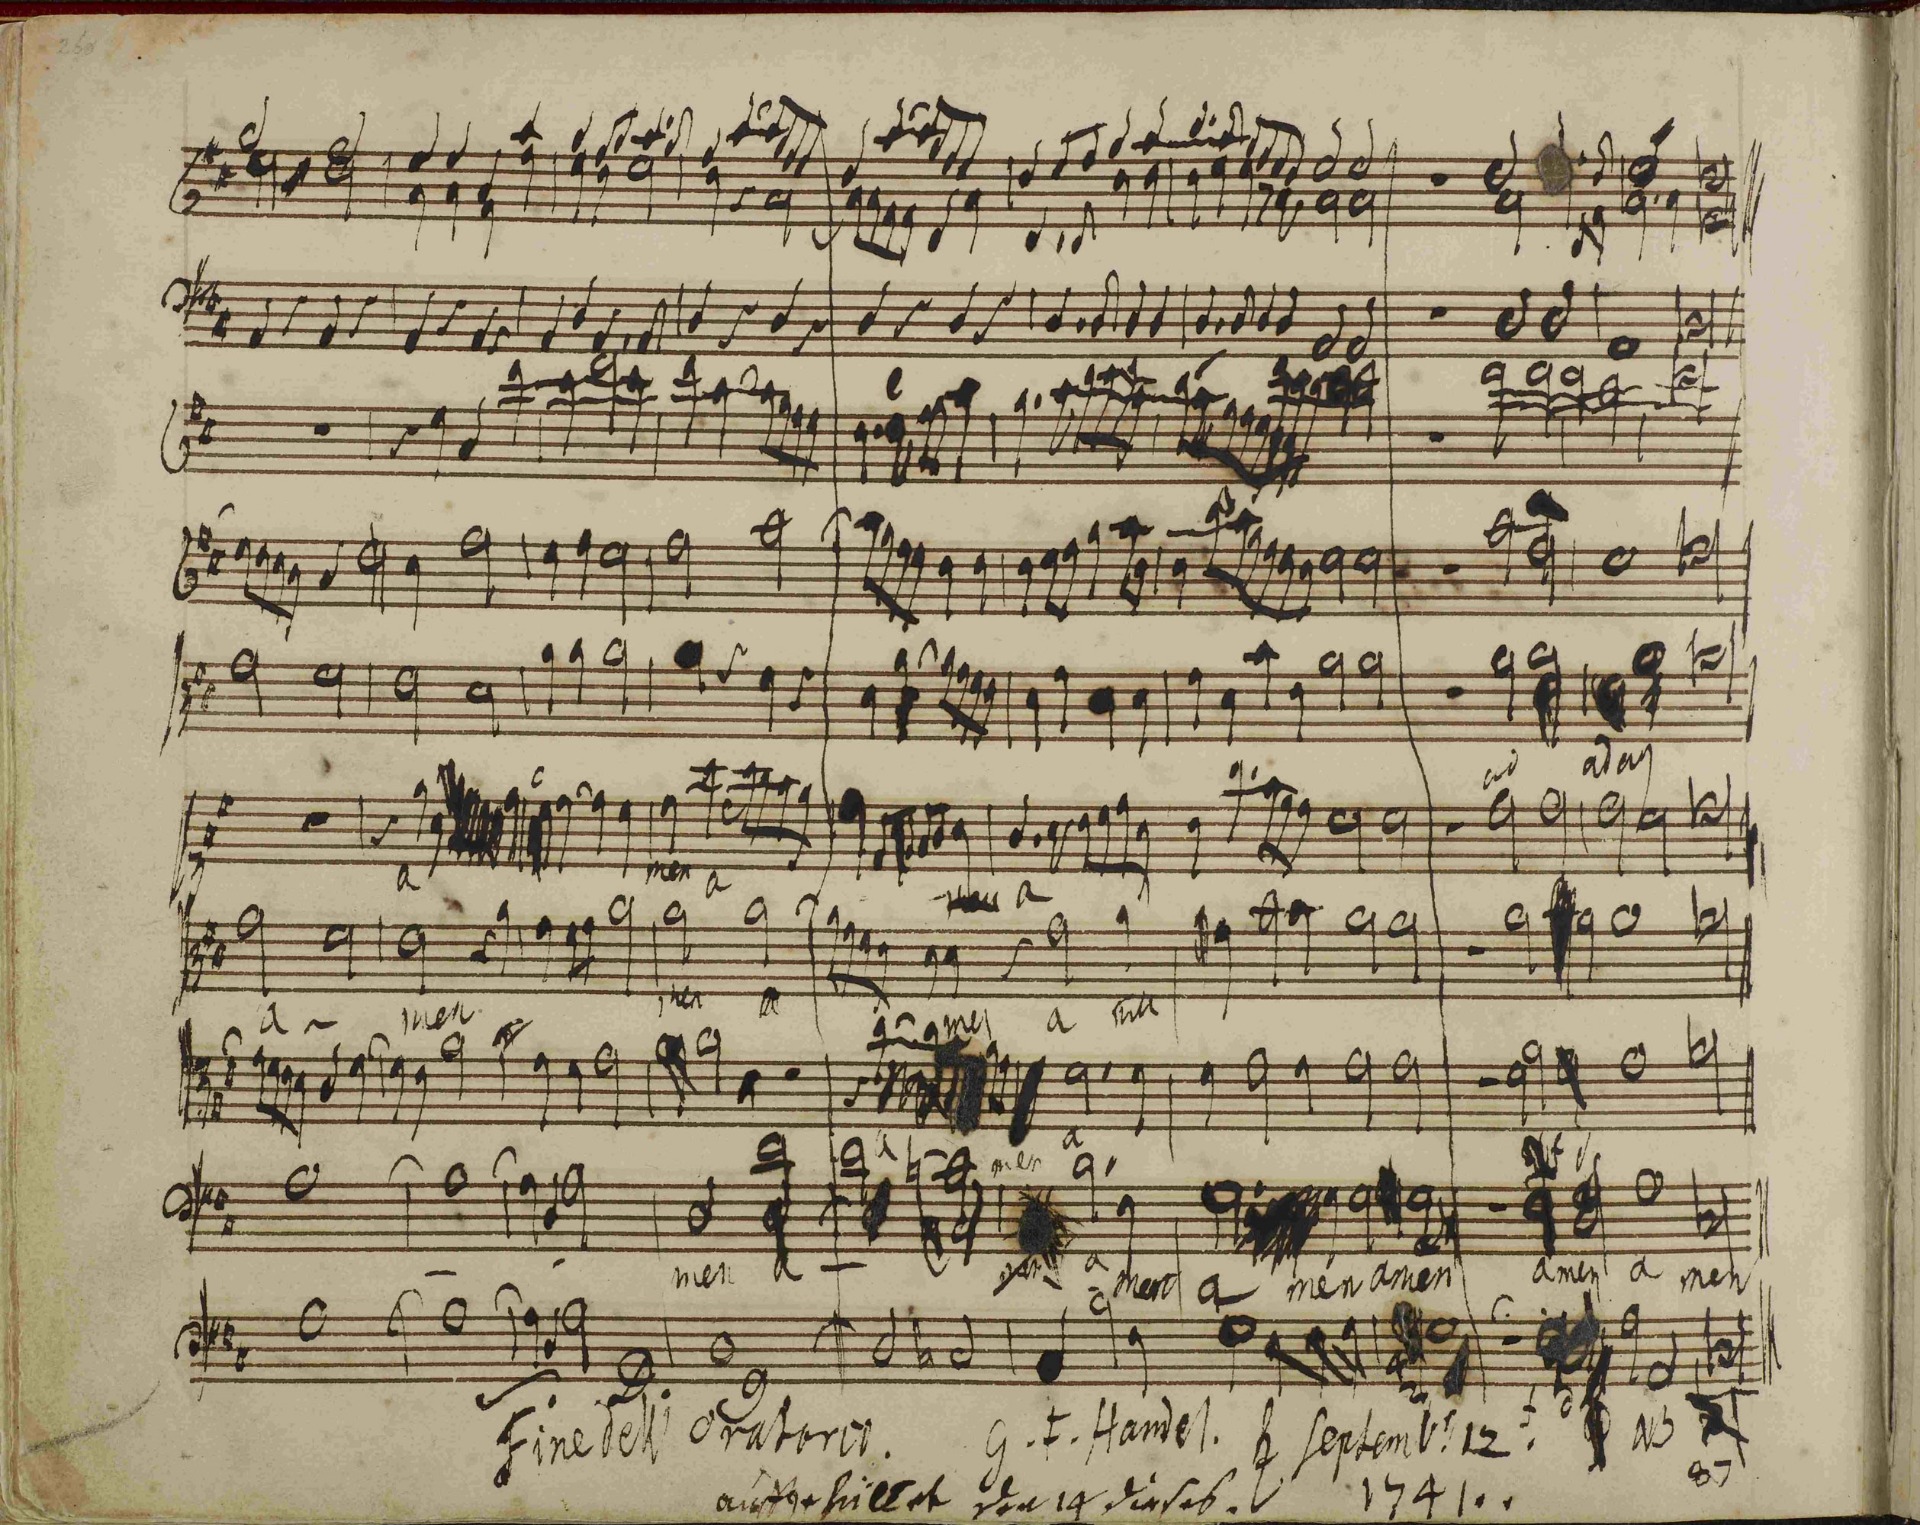 260
ad adag
a men a men a
a - men men a men a men
a men
a
men a – men a men a men amen amen a men
Fine dell oratorio. G. F. Handel. ♄ Septembr 12. NB
ausgefüllet den 14 dieses. 1741.